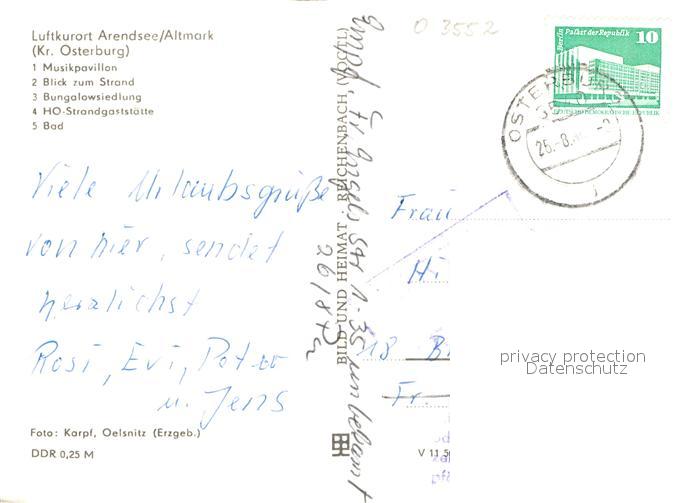 Luftkurort Arendsee/Altmark
(Kr. Osterburg)
1 Musikpavillon
2 Blick zum Strand
3 Bungalowsiedlung
4 HO-Strandgaststätte
5 Bad
Viele Urlaubsgrüße
von hier, sendet
herzlichst
Rosi, Evi, Peter
u. Jens
Foto: Karpf, Oelsnitz (Erzgeb.)
DDR 0,25 M
BILD UND HEIMAT REICHENBACH (VOGTL)
Empf.
unbekannt
26/8
O 3552
Berlin Palast der Republik 10
DEUTSCHE DEMOKRATISCHE REPUBLIK
OSTERBURG
Frau
Hi
18 B
Fr.
V 11 5
privacy protection
Datenschutz